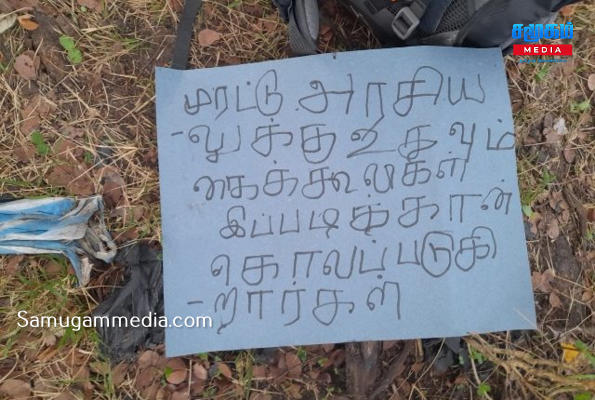 சமூகம்
MEDIA
முரட்டு அரசிய
-லுக்கு உதவும்
கைக்கூலகள்
இப்படித்தான்
கொலப்படுகி
-றார்கள்
Samugammedia.com